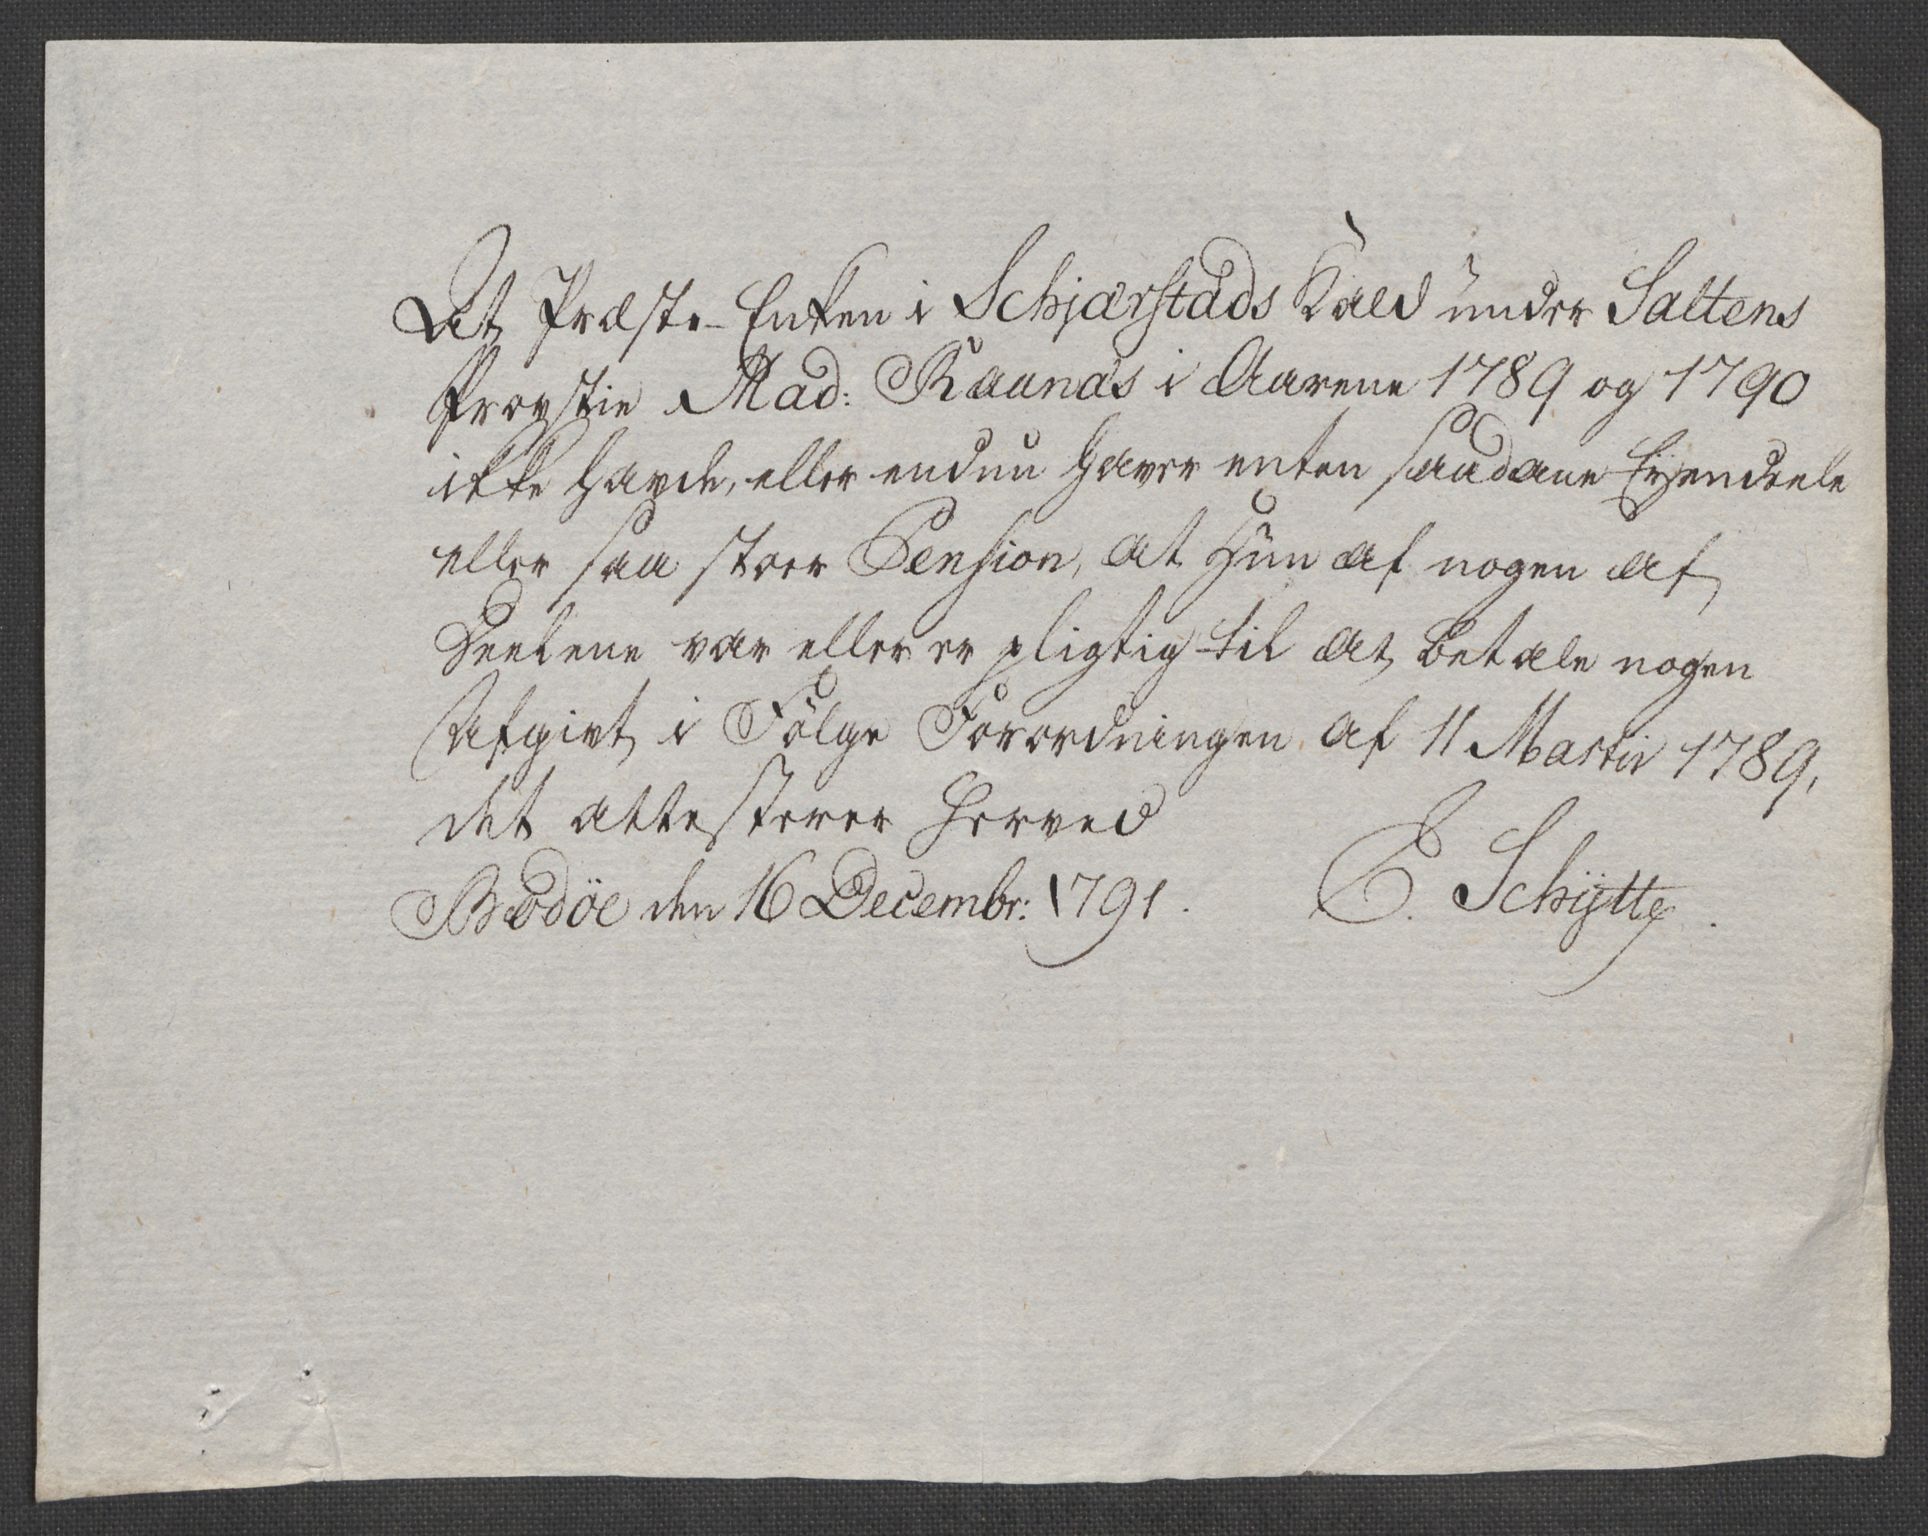 At Præste-Enken i Schjærstads Kald under Saltens
Provstie Mad: Raanaas i Aarene 1789 og 1790
ikke havde, eller endnu haver enten saadane Ejendeele
eller saa stoer Pension, at Hun af nogen af
Deelene var eller er pligtig til at betale nogen
Afgivt i Følge Forordningen af 11 Martii 1789,
det attesterer herved
Bodöe den 16 Decembr: 1791. E. Schÿtte.